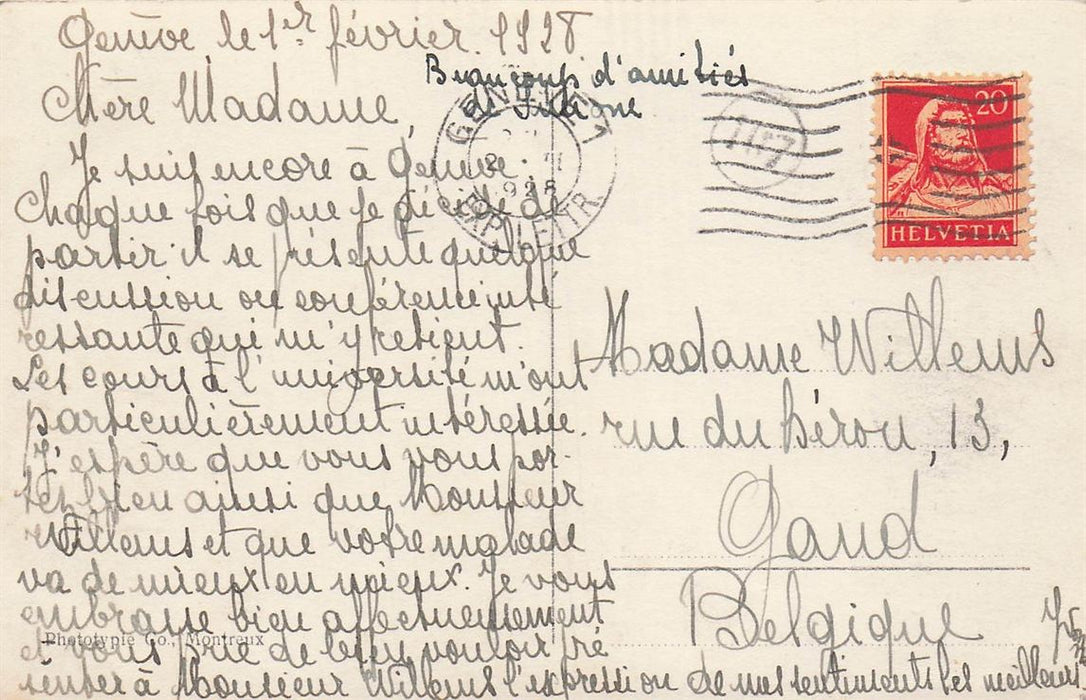 Genève le 1er février 1928
Beaucoup d'amitiés
de
Chère Madame,
Je suis encore à Genève.
Chaque fois que je décide de
partir il se présente quelque
discussion ou conférence inté
ressante qui m'y retient.
Les cours à l'université m'ont
particulièrement intéressée.
J'espère que vous vous por-
tez bien ainsi que Monsieur
Willems et que votre malade
va de mieux en mieux. Je vous
embrasse bien affectueusement
et vous prie de bien vouloir pré
senter à Monsieur Willems l'expression de mes sentiments les meilleurs
Phototypie Co., Montreux
GENÈVE 1
1928
EXP. LETTR.
1127
20
HELVETIA
Madame Willems
rue du Héron, 13,
Gand
Belgique